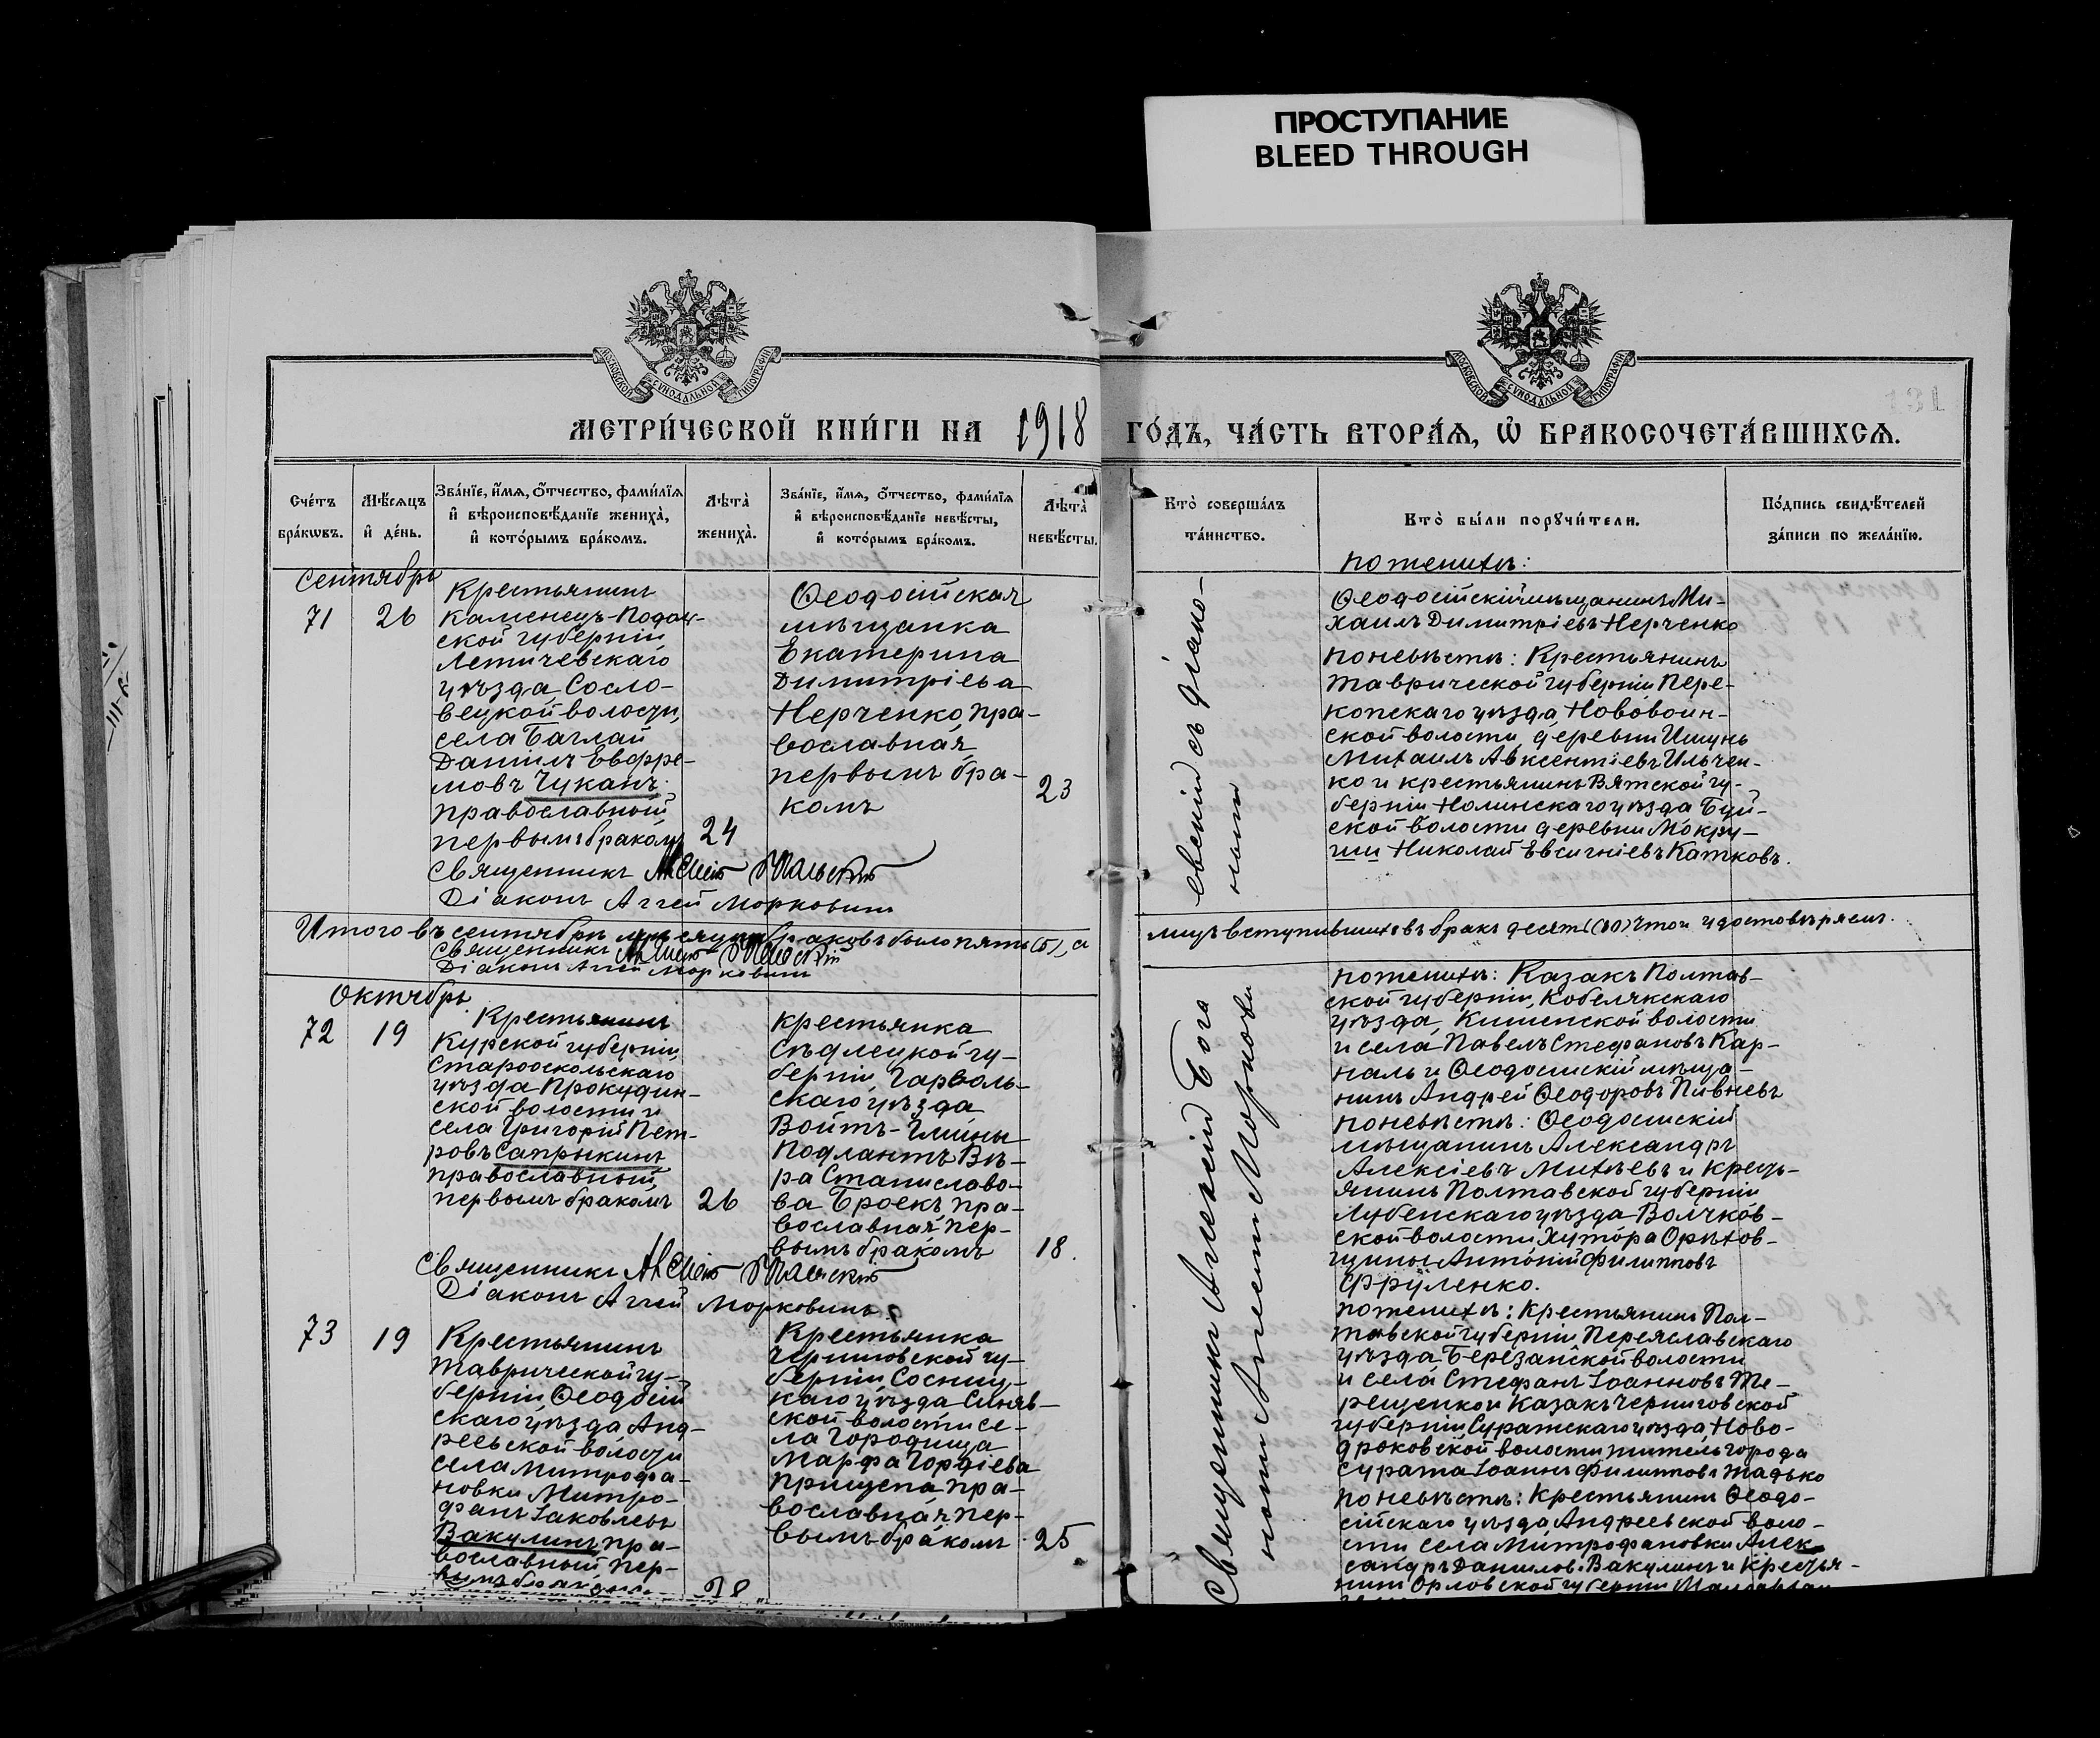 ПРОСТУПАНИЕ
BLEED THROUGH
МОСКОВСКОЙ СѴНОДАЛЬНОЙ ТИПОГРАФІИ
МОСКОВСКОЙ СѴНОДАЛЬНОЙ ТИПОГРАФІИ
131
МЕТРИ́ЧЕСКОЙ КНИ́ГИ НА 1918 ГО́ДЪ, ЧА́СТЬ ВТОРА́Ѧ, Ѡ҆ БРАКОСОЧЕТА́ВШИХСѦ.
Сче́тъ бра́кѡвъ.
Мѣ́сѧцъ и҆ де́нь.
Зва́нїе, и҆́мѧ, ѻ҆́тчество, фами́лїѧ
и҆ вѣроисповѣ́данїе жениха̀,
и҆ кото́рымъ бра́комъ.
Лѣта̀ жениха̀.
Зва́нїе, и҆́мѧ, ѻ҆́тчество, фами́лїѧ
и҆ вѣроисповѣ́данїе невѣ́сты,
и҆ кото́рымъ бра́комъ.
Лѣта̀ невѣ́сты.
Кто̀ соверша́лъ та́инство.
Кто̀ бы́ли порꙋчи́тели.
По́дпись свидѣ́телей за́писи по жела́нїю.
Сентябрь
71
26
Крестьянинъ
Каменецъ-Подоль-
ской губерніи
Летичевскаго
уѣзда, Сосло-
вецкой волости,
села Баглай
Даніилъ Евфре-
мовъ Чуканъ
православный
первымъ бракомъ
24
Ѳеодосійская
мѣщанка
Екатерина
Димитріева
Нерченко, пра-
вославная
первымъ бра-
комъ
23
Священникъ Алексій
Діаконъ Аггей Морковинъ
По женихѣ:
Ѳеодосійскій мѣщанинъ Ми-
хаилъ Димитріевъ Нерченко
По невѣстѣ: Крестьянинъ
Таврической губерніи Пере-
копскаго уѣзда Нововоин-
ской волости деревни Ишунь
Михаилъ Авксентіевъ Ильчен-
ко и крестьянинъ Вятской гу-
берніи Нолинскаго уѣзда Буй-
ской волости деревни Мокру-
ши Николай Евсигніевъ Катковъ.
евскій съ діако-
номъ
Итого въ сентябрѣ мѣсяцѣ браковъ было пять (5), а
лицъ вступившихъ въ бракъ десять (10) что и удостовѣряемъ.
Священникъ Алексій
Діаконъ Аггей Морковинъ
Октябрь
72
19
Крестьянинъ
Курской губерніи,
Старооскольскаго
уѣзда Прокудин-
ской волости и
села Григорій Пет-
ровъ Сапрыкинъ
православный
первымъ бракомъ
26
Крестьянка
Сѣдлецкой гу-
берніи, Гарволь-
скаго уѣзда
Войтъ-Гмины
Подлантъ Вѣ-
ра Станиславо-
ва Броекъ пра-
вославная пер-
вымъ бракомъ
18.
Священникъ Алексій
Діаконъ Аггей Морковинъ
По женихѣ: Казакъ Полтав-
ской губерніи, Кобелякскаго
уѣзда, Кишенской волости
и села Павелъ Стефановъ Кар-
наль и Ѳеодосійскій мѣща-
нинъ Андрей Ѳеодоровъ Пивневъ
По невѣстѣ: Ѳеодосійскій
мѣщанинъ Александръ
Алексіевъ Михѣевъ и Кресть-
янинъ Полтавской губерніи
Лубенскаго уѣзда Волчков-
ской волости Хутора Орѣхов-
щины Антоній Филипповъ
Фруленко.
Священникъ Алексій Бога
73
19
Крестьянинъ
Таврической гу-
берніи, Ѳеодосій
скаго уѣзда, Анд-
реевской волости
села Митрофа-
новки Митро-
фанъ Іаковлевъ
Вакулинъ пра-
вославный пер-
вымъ бракомъ
28
Крестьянка
Черниговской гу-
берніи Сосниц-
каго уѣзда Синяв-
ской волости се-
ла Городища
Марфа Гордіева
Прищепа пра-
вославная пер-
вымъ бракомъ
25
По женихѣ: Крестьянинъ Пол-
тавской губерніи Переяславскаго
уѣзда Березанской волости
и села Стефанъ Іоанновъ Те-
рещенко и Казакъ Черниговской
губерніи Суражскаго уѣзда Ново-
дроковской волости житель города
Суража Іоаннъ Филипповъ Жадько
По невѣстѣ: Крестьянинъ Ѳеодо-
сійскаго уѣзда Андреевской воло-
сти села Митрофановки Алек-
сандръ Даниловъ Вакулинъ и Крестья-
нинъ Орловской губерніи